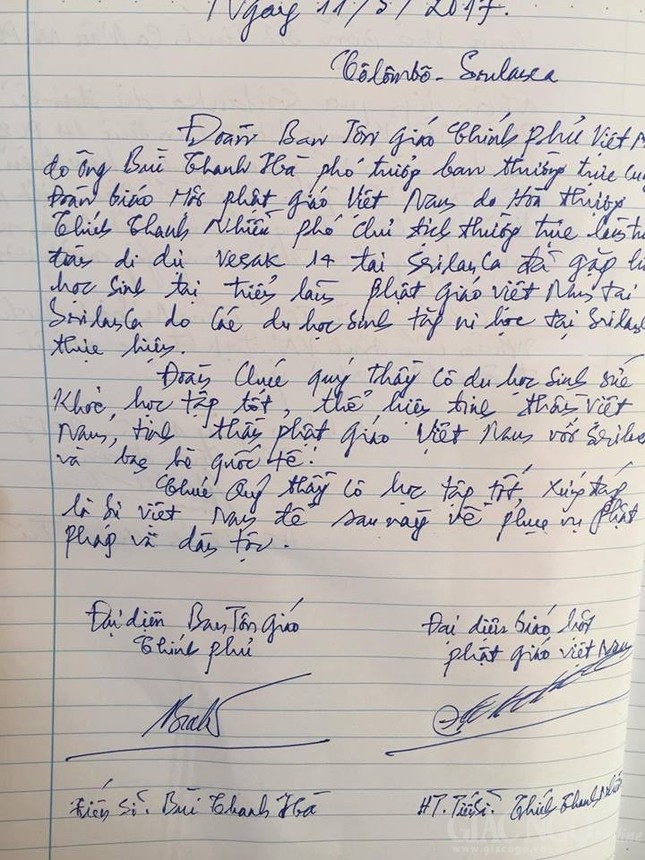 Ngày 11/5/2017.
Côlômbô - Srilanca
Đoàn Ban Tôn giáo Chính phủ Việt N
do ông Bùi Thanh Hà phó trưởng ban thường trực cùn
Đoàn Giáo Hội phật giáo Việt Nam do Hòa thượng
Thích Thanh Nhiễu phó chủ tịch thường trực làm trư
đoàn đi dự Vesak 14 tại Srilanca đã gặp
học sinh tại triển lãm phật giáo Việt Nam tại
Srilanca do các du học sinh tăng ni học tại Srilan
thực hiện.
Đoàn chúc quý thầy cô du học sinh sức
khỏe, học tập tốt, thể hiện tinh thần Việt
Nam, tinh thần phật giáo Việt Nam với Srilan
và bạn bè quốc tế!
Chúc quý thầy cô học tập tốt, xứng đáng
là Việt Nam để sau này về phục vụ phật
pháp và dân tộc.
Đại diện Ban Tôn giáo
Chính phủ
Đại diện Giáo hội
phật giáo Việt Nam
Tiến sĩ. Bùi Thanh Hà
HT. Tiến sĩ. Thích Thanh Nhiễu
GIAC NGO online
www.giacngo.vn